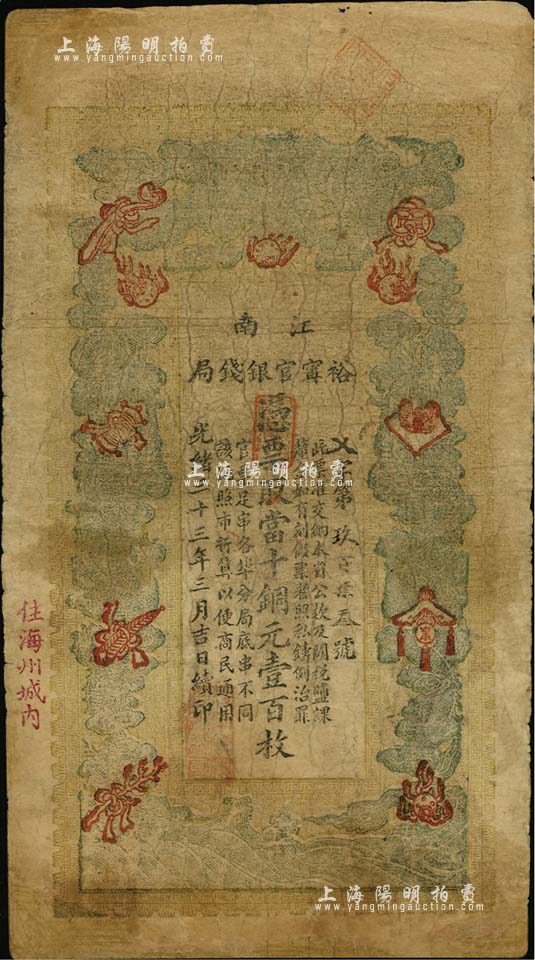 上海陽明拍賣
www.yangmingauction.com
上海陽明拍賣
www.yangmingauction.com
江南
裕甯官銀錢局
字第玖百柒叁號
此票准交納本省公款及關稅鹽課
如有私刻假票者照私鑄例治罪
憑票取當十銅元壹百枚
官 足串各埠分局底串不同
該 照市行算以便商民通用
光緒三十三年三月吉日續印
住海州城內
上海陽明拍賣
www.yangmingauction.com
上海陽明拍賣
www.yangmingauction.com